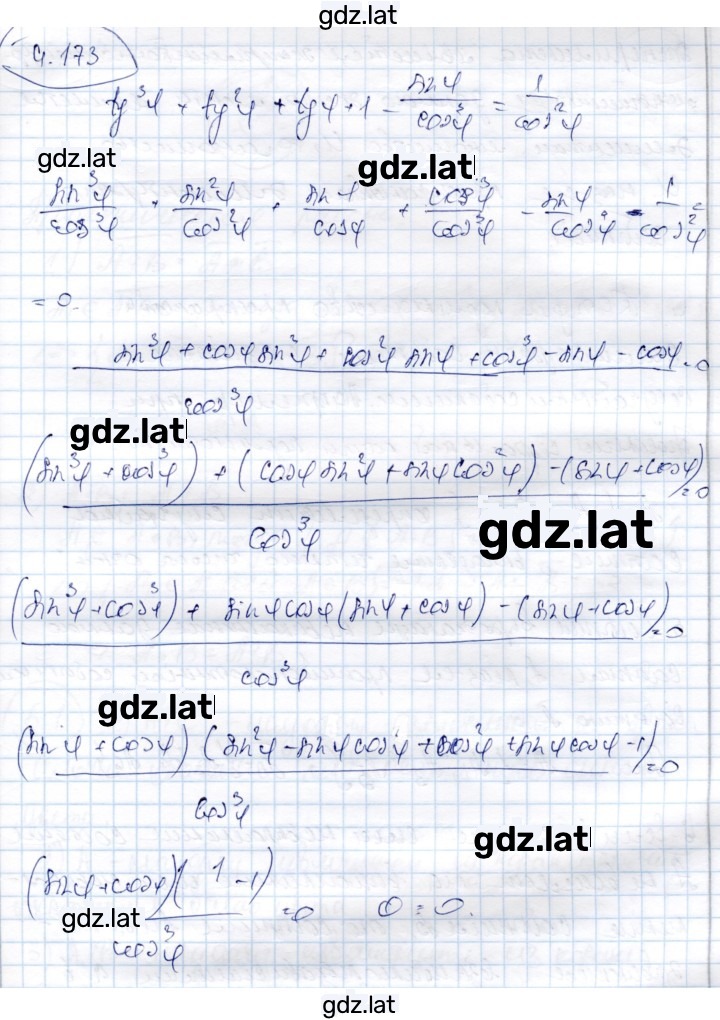 gdz.lat
4.173
tg³φ + tg²φ + tgφ + 1 - sinφ/cos³φ = 1/cos²φ
gdz.lat
gdz.lat
sin³φ/cos³φ + sin²φ/cos²φ + sinφ/cosφ + cos³φ/cos³φ - sinφ/cos³φ - 1/cos²φ =
= 0.
(sin³φ + cosφ sin²φ + cos²φ sinφ + cos³φ - sinφ - cosφ)/cos³φ = 0
gdz.lat
((sin³φ + cos³φ) + (cosφ sin²φ + sinφ cos²φ) - (sinφ + cosφ))/cos³φ = 0
gdz.lat
((sin³φ + cos³φ) + sinφ cosφ (sinφ + cosφ) - (sinφ + cosφ))/cos³φ = 0
gdz.lat
(sinφ + cosφ) (sin²φ - sinφ cosφ + cos²φ + sinφ cosφ - 1)/cos³φ = 0
gdz.lat
(sinφ + cosφ)(1 - 1)/cos³φ = 0 0 = 0.
gdz.lat
gdz.lat